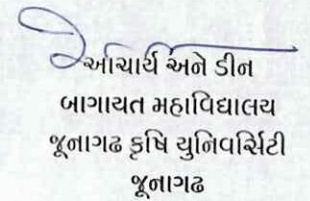 આચાર્ય અને ડીન
બાગાયત મહાવિદ્યાલય
જૂનાગઢ કૃષિ યુનિવર્સિટી
જૂનાગઢ